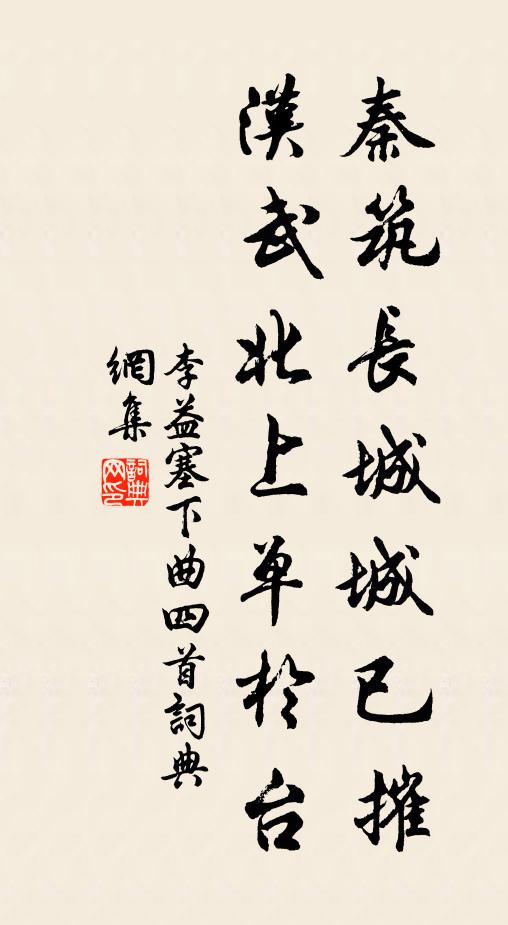 秦筑長城城已摧
漢武北上單於台
李益塞下曲四首詞典
網集
詞典
网印